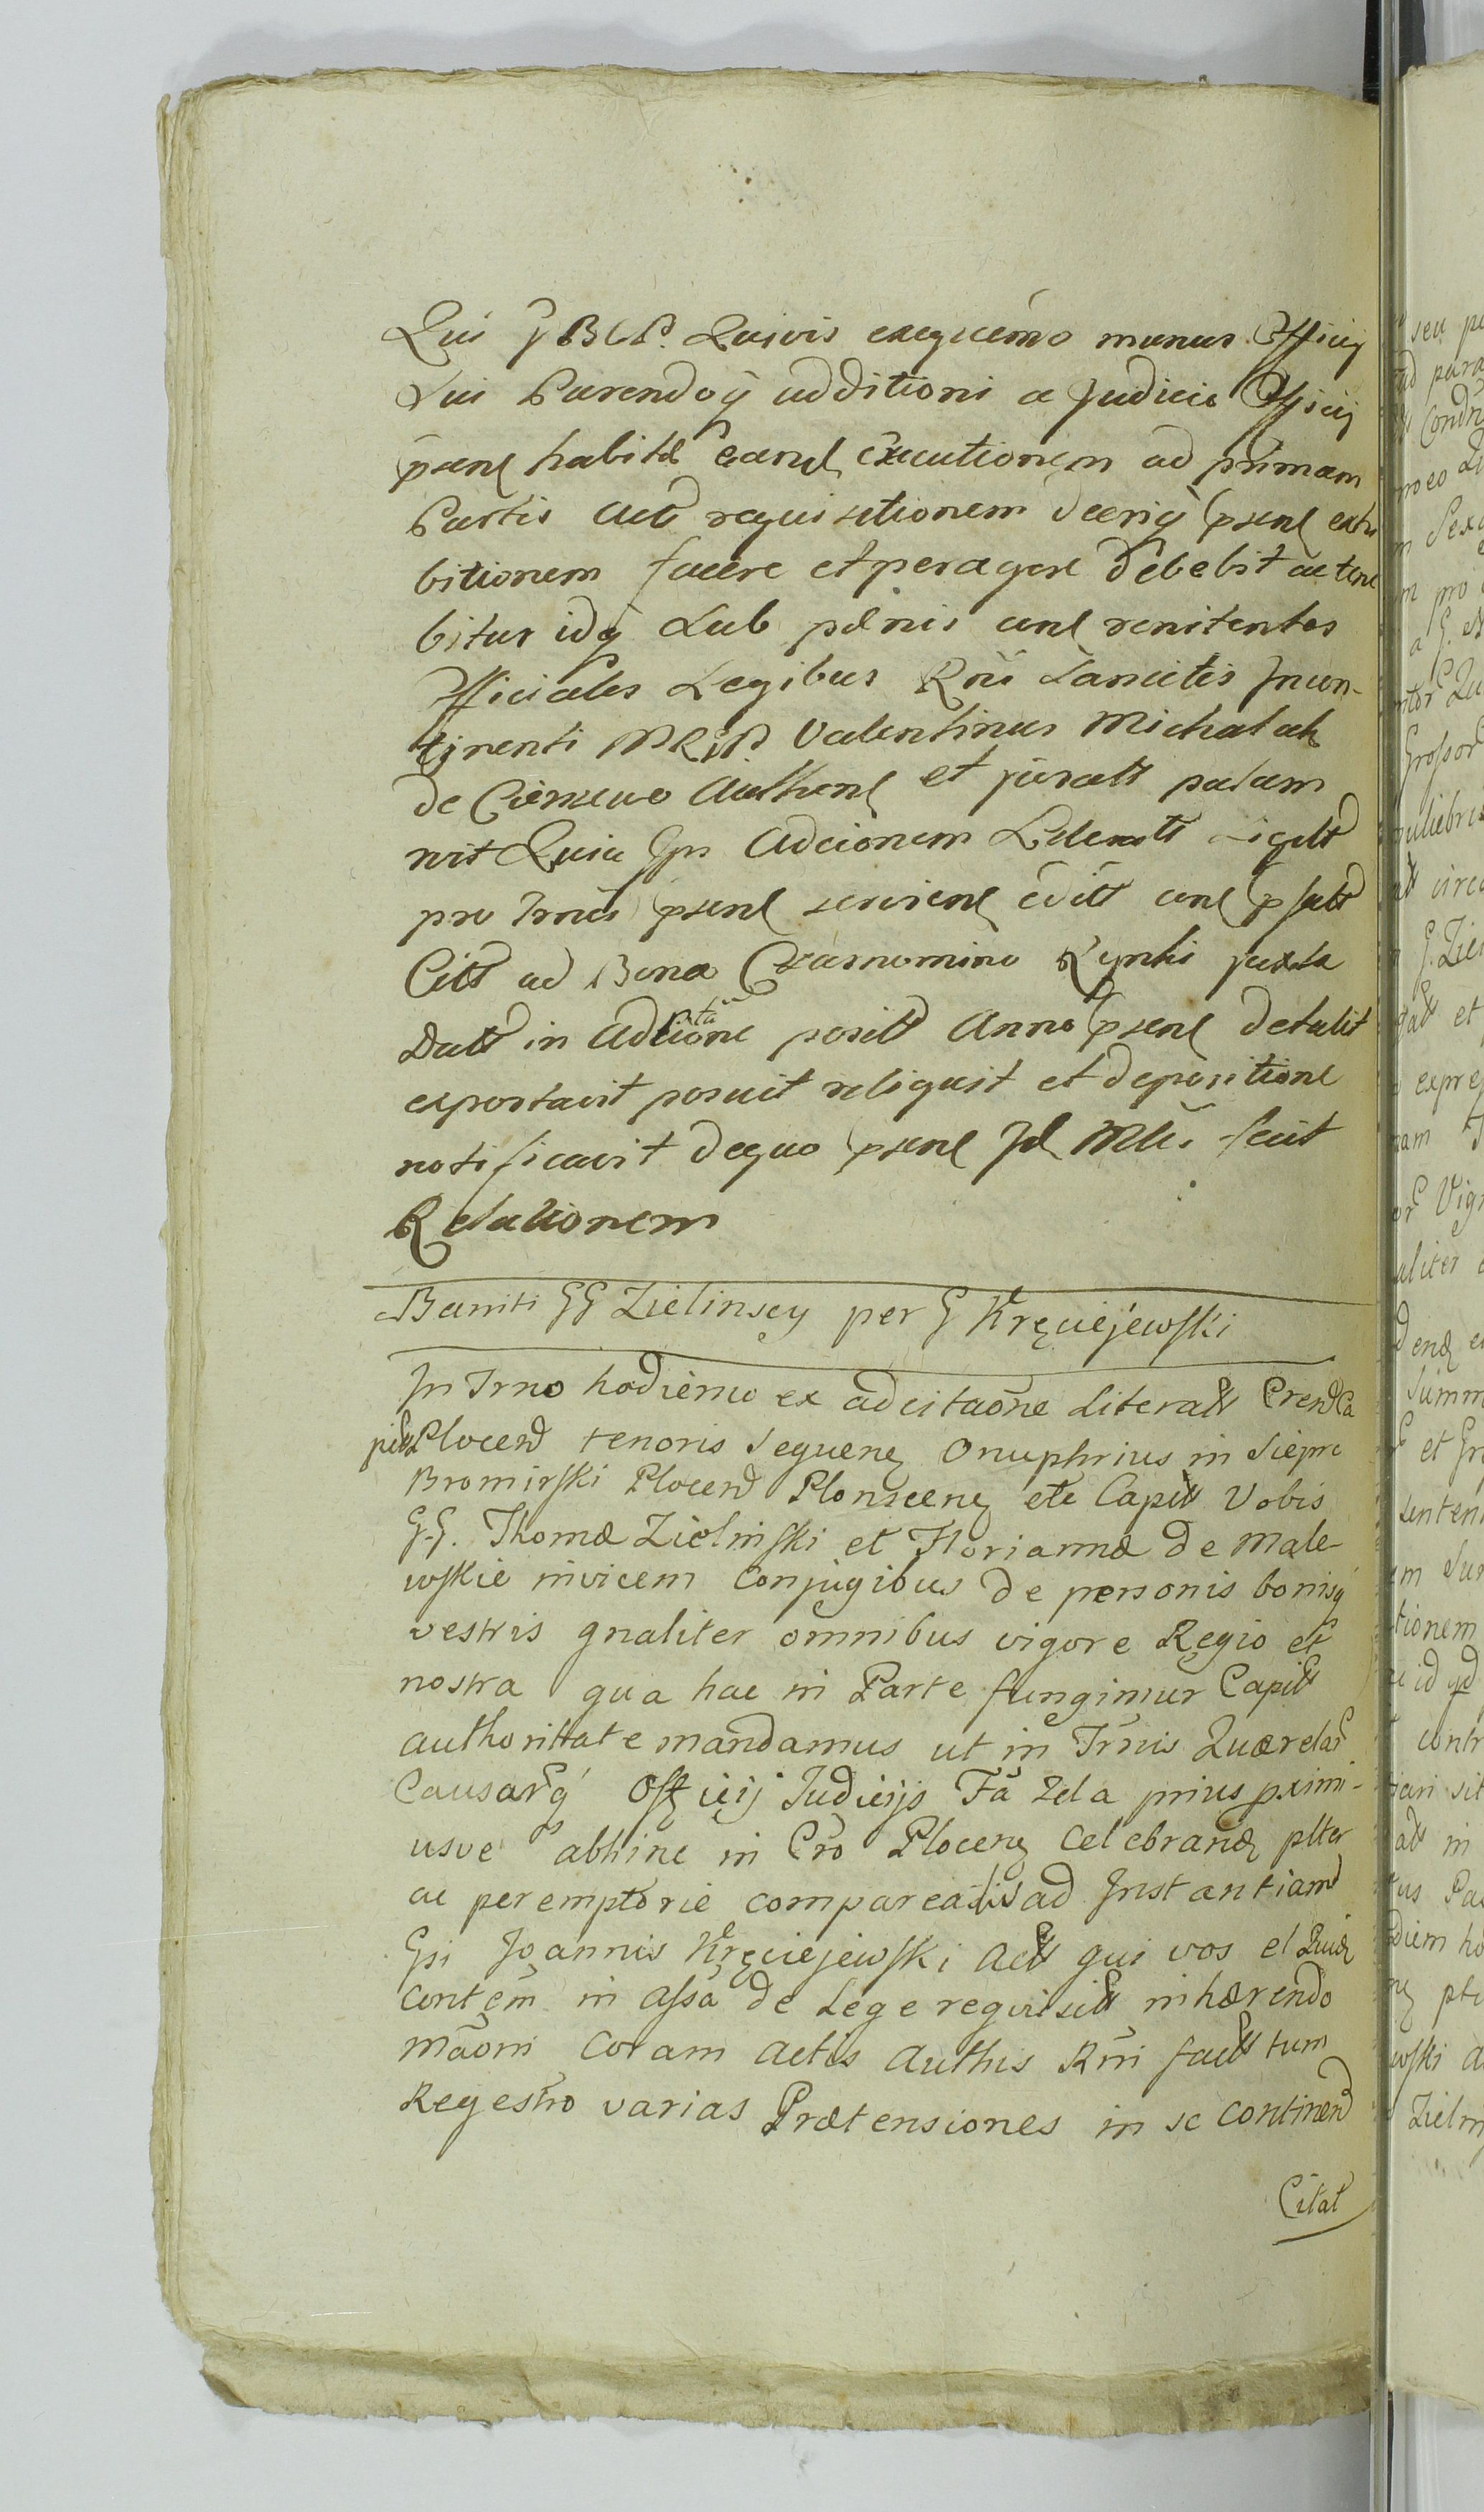 Qui  Quivis exequendo munus Officij
Sui Parendoq additioni a Judicio Officij
psene habitæ eand executionem ad primam
Partis Act requisitionem decretiq psene exhi
bitionem facere et peragere debebit ac tene
bitur idq Sub pænis cone renitentes
Officiales Legibus Rni Sancitis Incon-
tinenti  Valentinus Michalak
de  Authene et juratt palam
vit Quia Gps Adcionem Literatt Sigilt
pro Trnis psene serviene editt cone psatt
Citt ad Bona Czarnomino Rynki juxta
Datt in Adcitãone positt Anno psene detulit
exportavit posuit reliquit et depositione
notificavit dequo psene Id Mlis fecit
Relationem
Banniti GG Zielinscy per G Kręciejewski
In Trno hodierno ex adcitaõne Literatt Crend Ca
pitt Plocend tenoris sequene Onuphrius in Siepre
Bromirski Plocend Plonscene ete Capitt Vobis
G.G. Thomæ Zielinski et Floriannæ de Male-
wskie invicem Conjugibus de personis bonisq
vestris gnaliter omnibus vigore Regio et
nostra qua hac in Parte fungimur Capitt
authorittate mandamus ut in Trnis Quærelar
Causarq Officij Judicijs Fã 2da prius pximi-
usve abhinc in Cro Plocene Celebrand plter
ac peremptorie compareatis ad Instantiam
Gsi Joannis Kręciejewski Actt qui vos et Quid
contem in assa de Lege requisitt inhærendo
mãoni Coram Actis Authis Rni factt tum
Regestro varias Prætensiones in se Continend
Citat